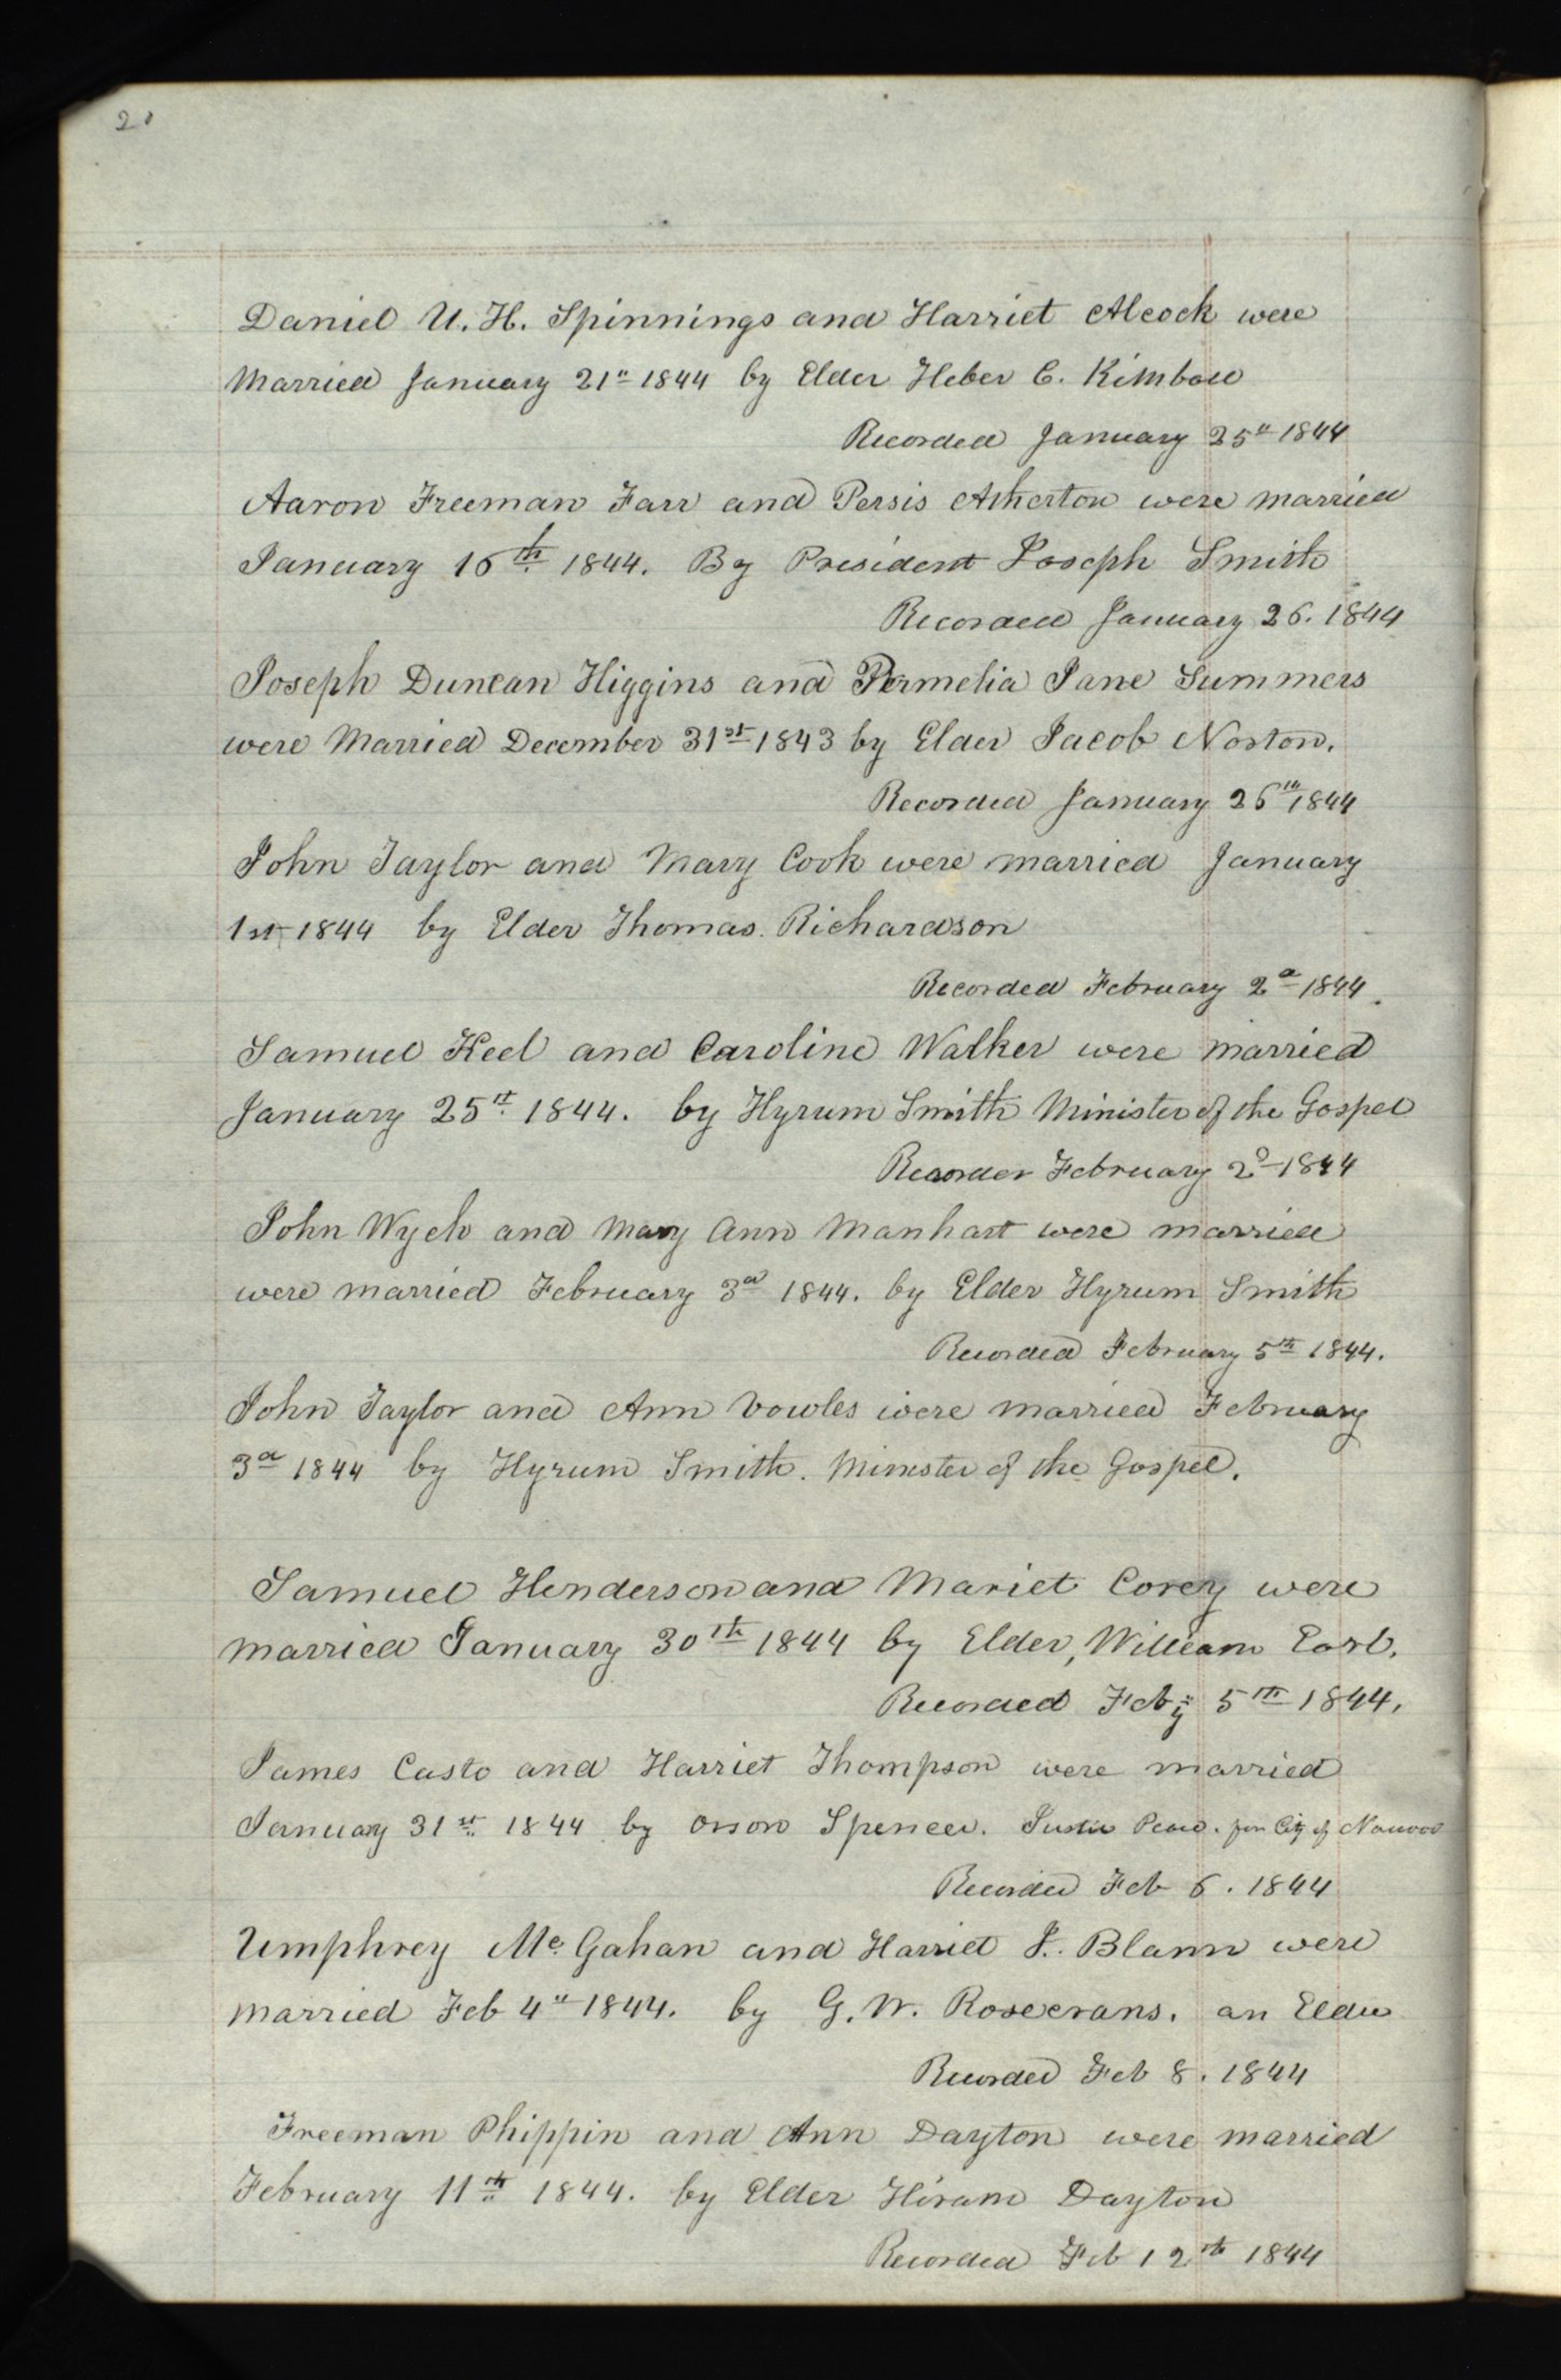 20
Daniel U. H. Spinnings and Harriet Alcock were
Married January 21" 1844 by Elder Heber C. Kimball
Recorded January 25" 1844
Aaron Freeman Farr and Persis Atherton were married
January 16th 1844. By President Joseph Smith
Recorded January 26. 1844
Joseph Duncan Higgins and Permelia Jane Summers
were Married December 31st 1843 by Elder Jacob Norton.
Recorded January 26th 1844
John Taylor and Mary Cook were married January
1st 1844 by Elder Thomas. Richardson
Recorded February 2d 1844.
Samuel Keel and Caroline Walker were married
January 25th 1844. by Hyrum Smith Minister of the Gospel
Recorder February 2d 1844
John Wych and Mary Ann Manhart were married
were married February 3d 1844. by Elder Hyrum Smith
Recorded February 5th 1844.
John Taylor and Ann Vowles were married February
3d 1844 by Hyrum Smith. Minister of the Gospel.
Samuel Henderson and Mariet Corey were
married January 30th 1844 by Elder, William Earl.
Recorded Feby 5th 1844.
James Casto and Harriet Thompson were married
January 31st 1844 by Orson Spencer. Justice Peace. for City of Nauvoo
Recorded Feb 6. 1844
Umphrey Mc. Gahan and Harriet J. Blann were
married Feb 4" 1844. by G. W. Rosecrans. an Elder
Recorded Feb 8. 1844
Freeman Phippin and Ann Dayton were married
February 11th 1844. by Elder Hiram Dayton
Recorded Feb 12th 1844